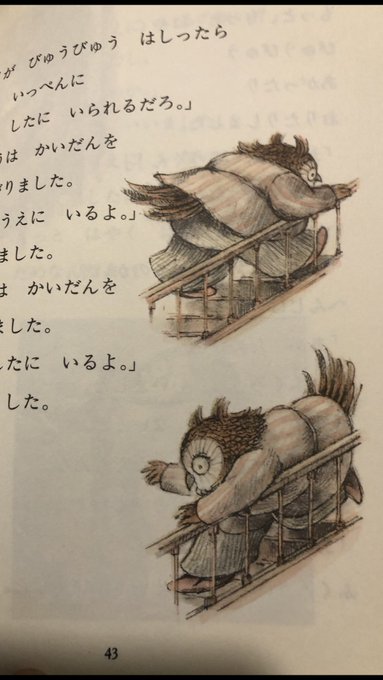 が びゅうびゅう はしったら
いっぺんに
したに いられるだろ。」
は かいだんを
りました。
うえに いるよ。」
ました。
は かいだんを
ました。
たに いるよ。」
した。
43